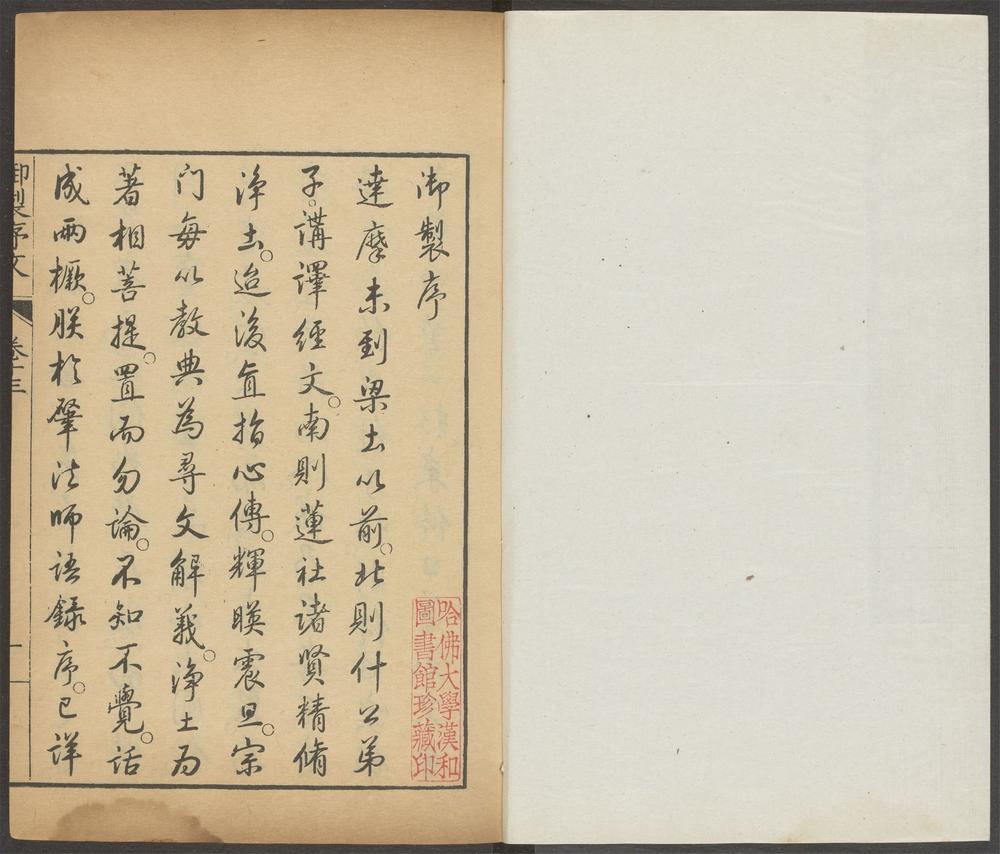 御製序
達摩未到梁土以前。北則什公弟
子。講譯經文。南則蓮社諸賢精脩
淨土。迨後直指心傳。輝暎震旦。宗
门每以教典為尋文解義。淨土為
著相菩提。置而勿論。不知不覺。話
成兩橛。朕於肇法师语録序。已详
御製序文 卷十三 一
哈佛大學漢和
圖書館珍藏印